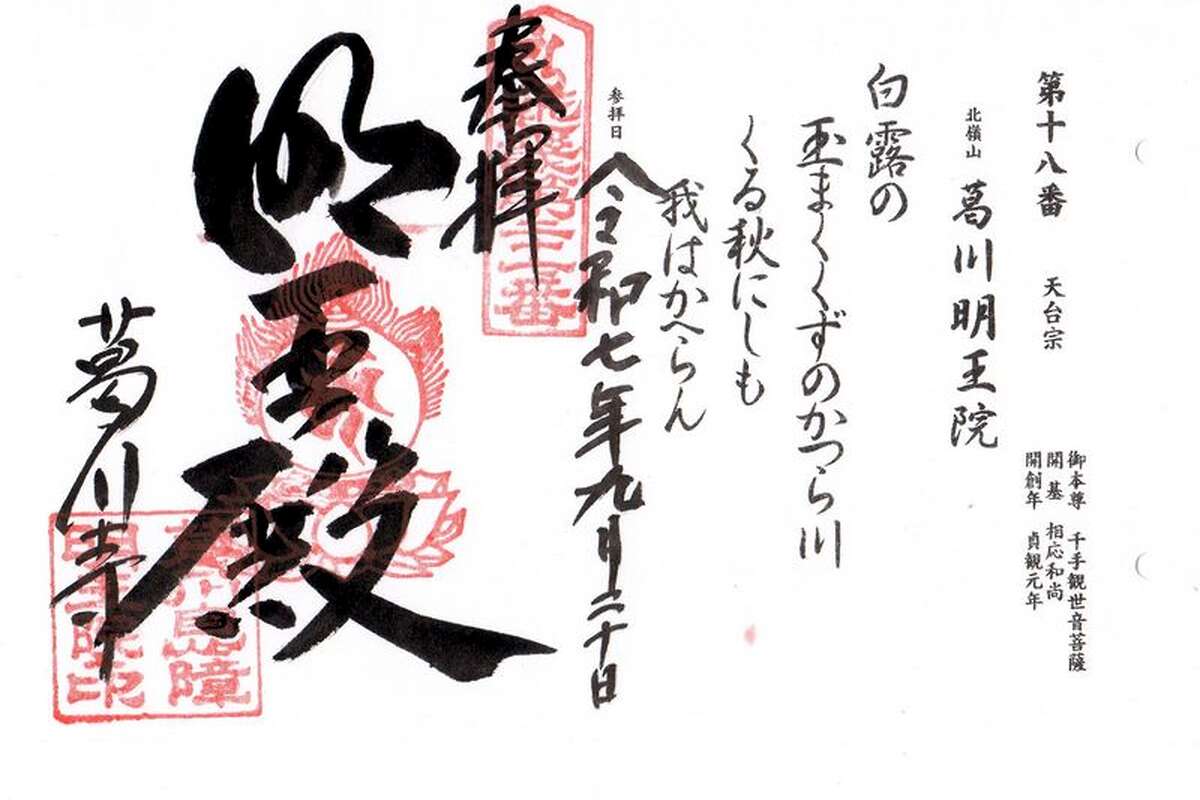 第十八番　天台宗
御本尊　千手観世音菩薩
開基　相応和尚
開創年　貞観元年
北嶺山　葛川明王院
白露の
玉まくくずのかつら川
くる秋にしも
我はかへらん
参拝日　令和七年九月二十日
奉拝
明王殿
葛川寺
葛川息障
明王院印